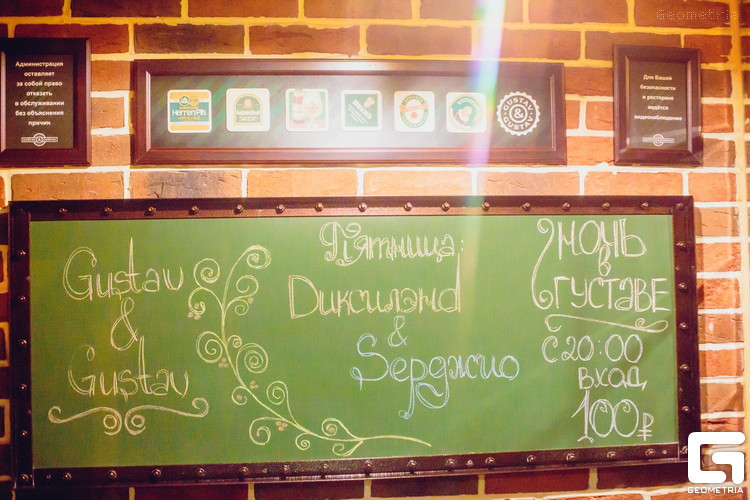 Geometria
Администрация
оставляет
за собой право
отказать
в обслуживании
без объяснения
причин
HerrenPils
GUSTAV
&
GUSTAV
Для Вашей
безопасности
в ресторане
ведётся
видеонаблюдение
Gustav
&
Gustav
Пятница:
Диксилэнд
&
Серджио
Июнь
в
ГУСТАВЕ
С 20:00
вход
100₽
G
GEOMETRIA